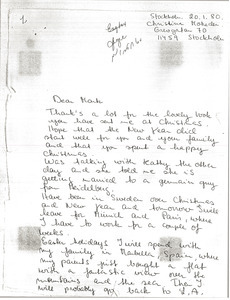 1.
Stockholm 20.1.80.
Christine
70
11459 Stockholm
Dear Mark
Thank's a lot for the lovely book
you have sent me at Christmas.
Hope that the New Year did
start well for you and your family
and that you spent a happy
Christmas.
Was talking with Kathy the other
day and she told me she is
getting married to a german guy
from Heidelberg.
Have been in Sweden over Christmas
and New Year and tomorrow I will
leave for Munich and Paris, where
I have to work for a couple of
weeks.
Easter holidays I will spend with
my family in Marbella, Spain, where
my parents just bought a flat
with a fantastic view over the
mountains and the sea. Then I
will probably go back to L.A.